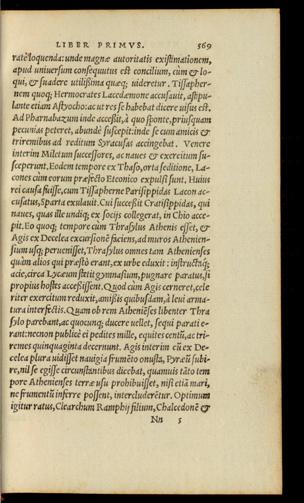 LIBER PRIMVS. 569
ratè loquenda: unde magnæ autoritatis existimationem,
apud uniuersum consequutus est concilium, cùm & lo-
qui, & suadere utilissima quæq; uideretur. Tissapher-
nem quoq; Hermocrates Lacedæmone accusauit, astipu-
lante etiam Astyocho: ac ut res se habebat dicere uisus est.
Ad Pharnabazum inde accessit, à quo sponte, priusquam
pecunias peteret, abundè suscepit: inde se cum amicis &
triremibus ad reditum Syracusas accingebat. Venere
interim Miletum successores, ac naues & exercitum su-
sceperunt. Eodem tempore ex Thaso, orta seditione, La-
cones cum eorum præfecto Eteonico expulsi sunt. Huius
rei causa fuisse, cum Tissapherne Parisippidas Lacon ac-
cusatus, Sparta exulauit. Cui successit Cratisippidas, qui
naues, quas ille undiq; ex socijs collegerat, in Chio acce-
pit. Eo quoq; tempore cùm Thrasylus Athenis esset, &
Agis ex Decelea excursionē faciens, ad muros Athenien-
sium usq; peruenisset, Thrasylus omnes tam Athenienses
quàm alios qui præstò erant, ex urbe eduxit: instructāq;
acie, circa Lycæum stetit gymnasium, pugnare paratus, si
propius hostes accessissent. Quod cùm Agis cerneret, cele
riter exercitum reduxit, amissis quibusdam, à leui arma-
tura interfectis. Quam ob rem Atheniēses libenter Thra
sylo parebant, ac quocunq; ducere uellet, sequi parati e-
rant: necnon publicè ei pedites mille, equites centū, ac tri-
remes quinquaginta decernunt. Agis interim cū ex De-
celea plura uidisset nauigia frumēto onusta, Pyræū subi-
re, nil se egisse circunstantibus dicebat, quamuis tāto tem
pore Athenienses terræ usu prohibuisset, nisi etiā mari,
ne frumentū inferre possent, intercluderētur. Optimum
igitur ratus, Clearchum Ramphij filium, Chalcedonē &
Nn 5